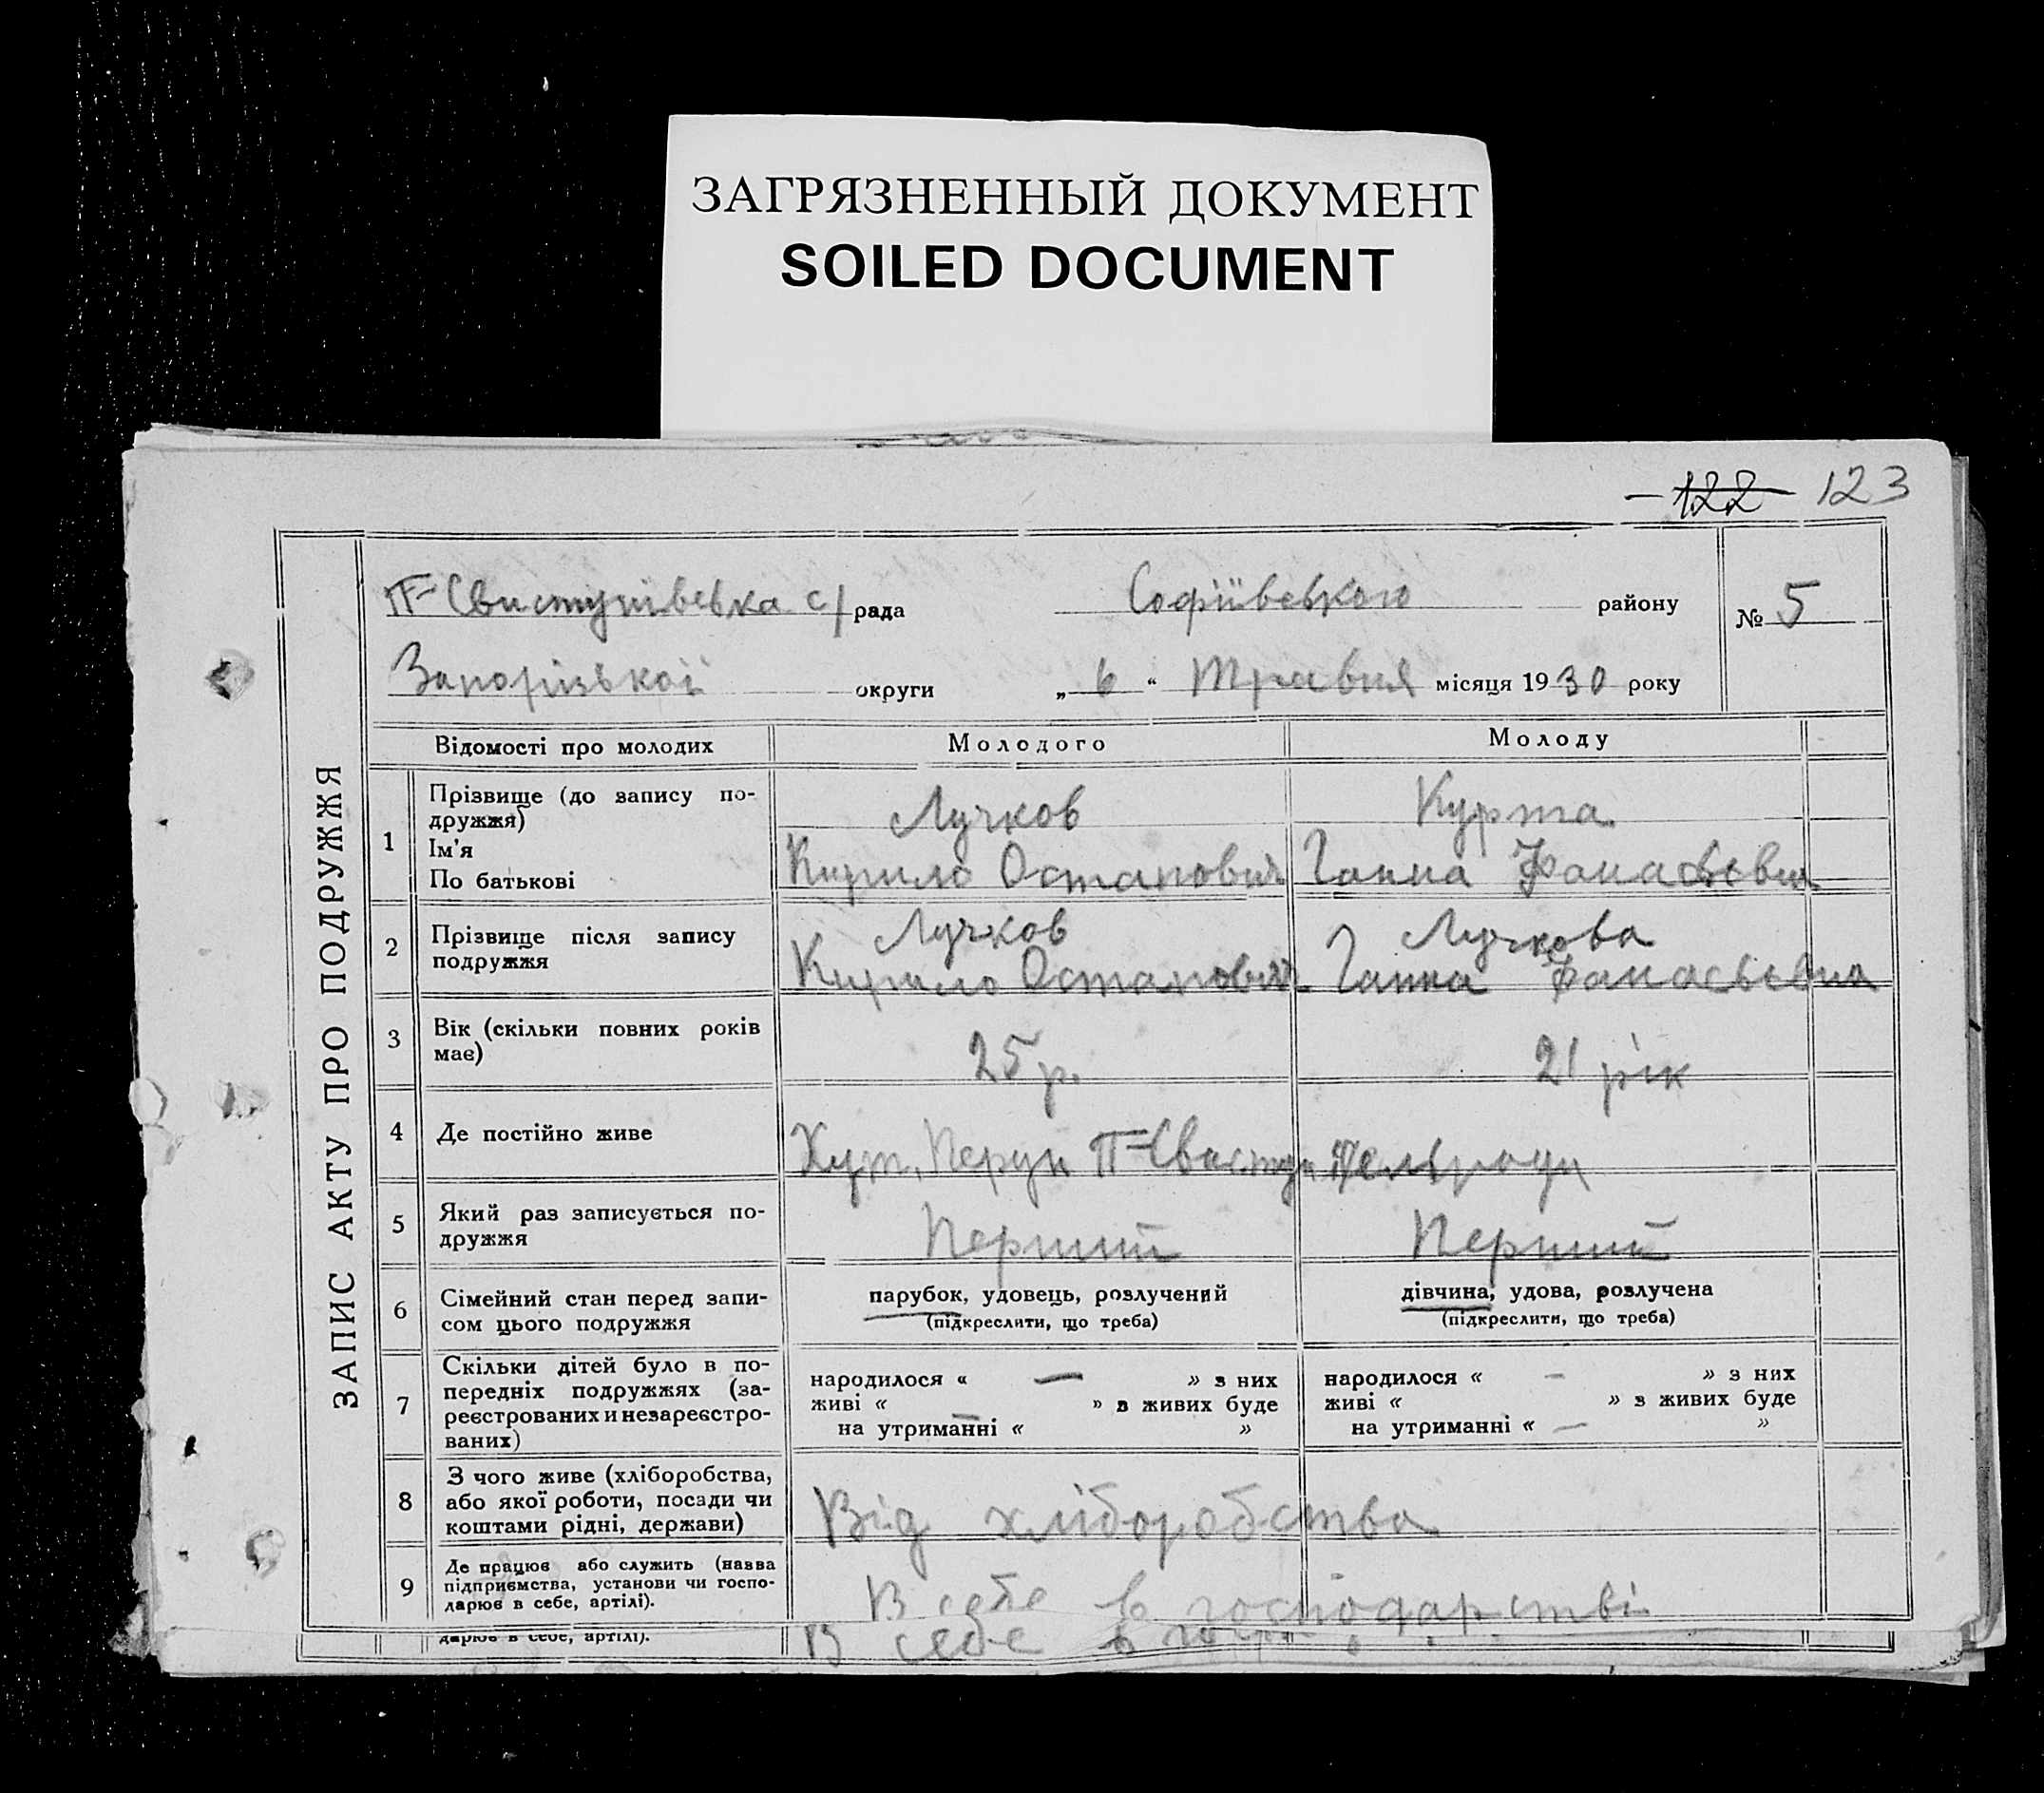 ЗАГРЯЗНЕННЫЙ ДОКУМЕНТ
SOILED DOCUMENT
122 123
ЗАПИС АКТУ ПРО ПОДРУЖЖЯ
П-Свистунівська с/рада Софіївського району № 5
Запорізької округи „ 6 “ Травня місяця 1930 року
Відомості про молодих Молодого Молоду
1 Прізвище (до запису по-
дружжя)
Ім'я
По батькові
Лучков
Кирило Остапович
Курта
Ганна Фанасьєвна
2 Прізвище після запису
подружжя
Лучков
Кирило Остапович
Лучкова
Ганна Фанасьєвна
3 Вік (скільки повних років
має)
25 р.
21 рік
4 Де постійно живе
Хут. Перун П-Свистун сельради
5 Який раз записується по-
дружжя
Перший
Перший
6 Сімейний стан перед запи-
сом цього подружжя
парубок, удовець, розлучений
(підкреслити, що треба)
дівчина, удова, розлучена
(підкреслити, що треба)
7 Скільки дітей було в по-
передніх подружжях (за-
реєстрованих и незареєстро-
ваних)
народилося « — » з них
живі « » з живих буде
на утриманні « — »
народилося « — » з них
живі « » з живих буде
на утриманні « — »
8 З чого живе (хліборобства,
або якої роботи, посади чи
коштами рідні, держави)
Від хліборобства
9 Де працює або служить (назва
підприємства, установи чи госпо-
дарює в себе, артілі).
В себе в господарстві
дарює в себе, артілі).
В себе в